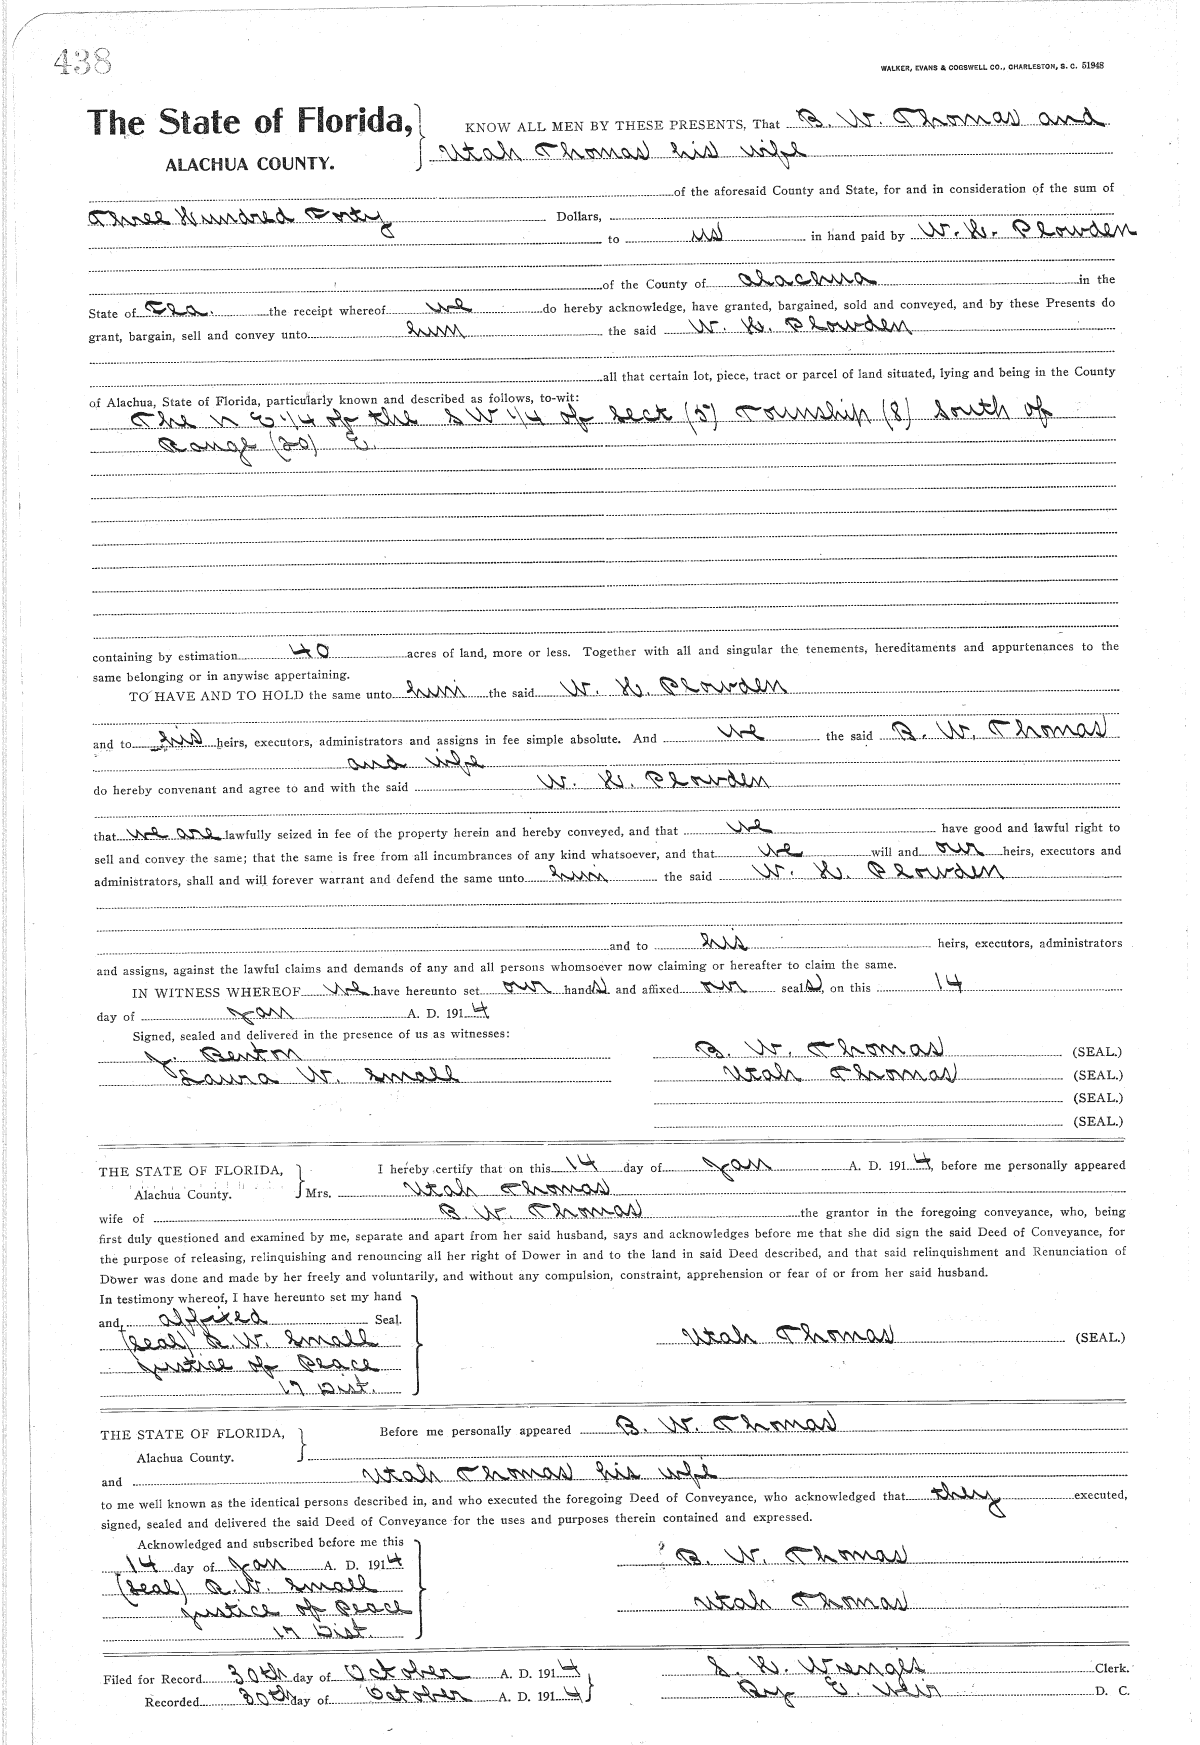 438
WALKER, EVANS & COGSWELL CO., CHARLESTON, S. C. 51948
The State of Florida, KNOW ALL MEN BY THESE PRESENTS, That B. W. Thomas and
ALACHUA COUNTY. Utah Thomas his wife
of the aforesaid County and State, for and in consideration of the sum of
Three Hundred Forty Dollars,
to us in hand paid by W. H. Plowden
of the County of Alachua in the
State of Fla. the receipt whereof we do hereby acknowledge, have granted, bargained, sold and conveyed, and by these Presents do
grant, bargain, sell and convey unto him the said W. H. Plowden
all that certain lot, piece, tract or parcel of land situated, lying and being in the County
of Alachua, State of Florida, particularly known and described as follows, to-wit:
The N E 1/4 of the S W 1/4 of Sect (5) Township (8) South of
Range (20) E.
containing by estimation 40 acres of land, more or less. Together with all and singular the tenements, hereditaments and appurtenances to the
same belonging or in anywise appertaining.
TO HAVE AND TO HOLD the same unto him the said W. H. Plowden
and to his heirs, executors, administrators and assigns in fee simple absolute. And we the said B. W. Thomas
and wife
do hereby convenant and agree to and with the said W. H. Plowden
that we are lawfully seized in fee of the property herein and hereby conveyed, and that we have good and lawful right to
sell and convey the same; that the same is free from all incumbrances of any kind whatsoever, and that we will and our heirs, executors and
administrators, shall and will forever warrant and defend the same unto him the said W. H. Plowden
and to his heirs, executors, administrators
and assigns, against the lawful claims and demands of any and all persons whomsoever now claiming or hereafter to claim the same.
IN WITNESS WHEREOF we have hereunto set our hands and affixed our seals, on this 14
day of Jan A. D. 1914
Signed, sealed and delivered in the presence of us as witnesses:
J. Benton B. W. Thomas (SEAL.)
Laura W. Small Utah Thomas (SEAL.)
(SEAL.)
(SEAL.)
THE STATE OF FLORIDA, I hereby certify that on this 14 day of Jan A. D. 1914, before me personally appeared
Alachua County. Mrs. Utah Thomas
wife of B. W. Thomas the grantor in the foregoing conveyance, who, being
first duly questioned and examined by me, separate and apart from her said husband, says and acknowledges before me that she did sign the said Deed of Conveyance, for
the purpose of releasing, relinquishing and renouncing all her right of Dower in and to the land in said Deed described, and that said relinquishment and Renunciation of
Dower was done and made by her freely and voluntarily, and without any compulsion, constraint, apprehension or fear of or from her said husband.
In testimony whereof, I have hereunto set my hand
and affixed Seal.
(Seal) R. W. Small Utah Thomas (SEAL.)
Justice of Peace
17 Dist.
THE STATE OF FLORIDA, Before me personally appeared B. W. Thomas
Alachua County.
and Utah Thomas his wife
to me well known as the identical persons described in, and who executed the foregoing Deed of Conveyance, who acknowledged that they executed,
signed, sealed and delivered the said Deed of Conveyance for the uses and purposes therein contained and expressed.
Acknowledged and subscribed before me this
14 day of Jan A. D. 1914 B. W. Thomas
(Seal) R. W. Small
Justice of Peace Utah Thomas
17 Dist.
Filed for Record 30th day of October A. D. 1914 S. H. Wienges Clerk.
Recorded 30th day of October A. D. 1914 By E. Weir D. C.